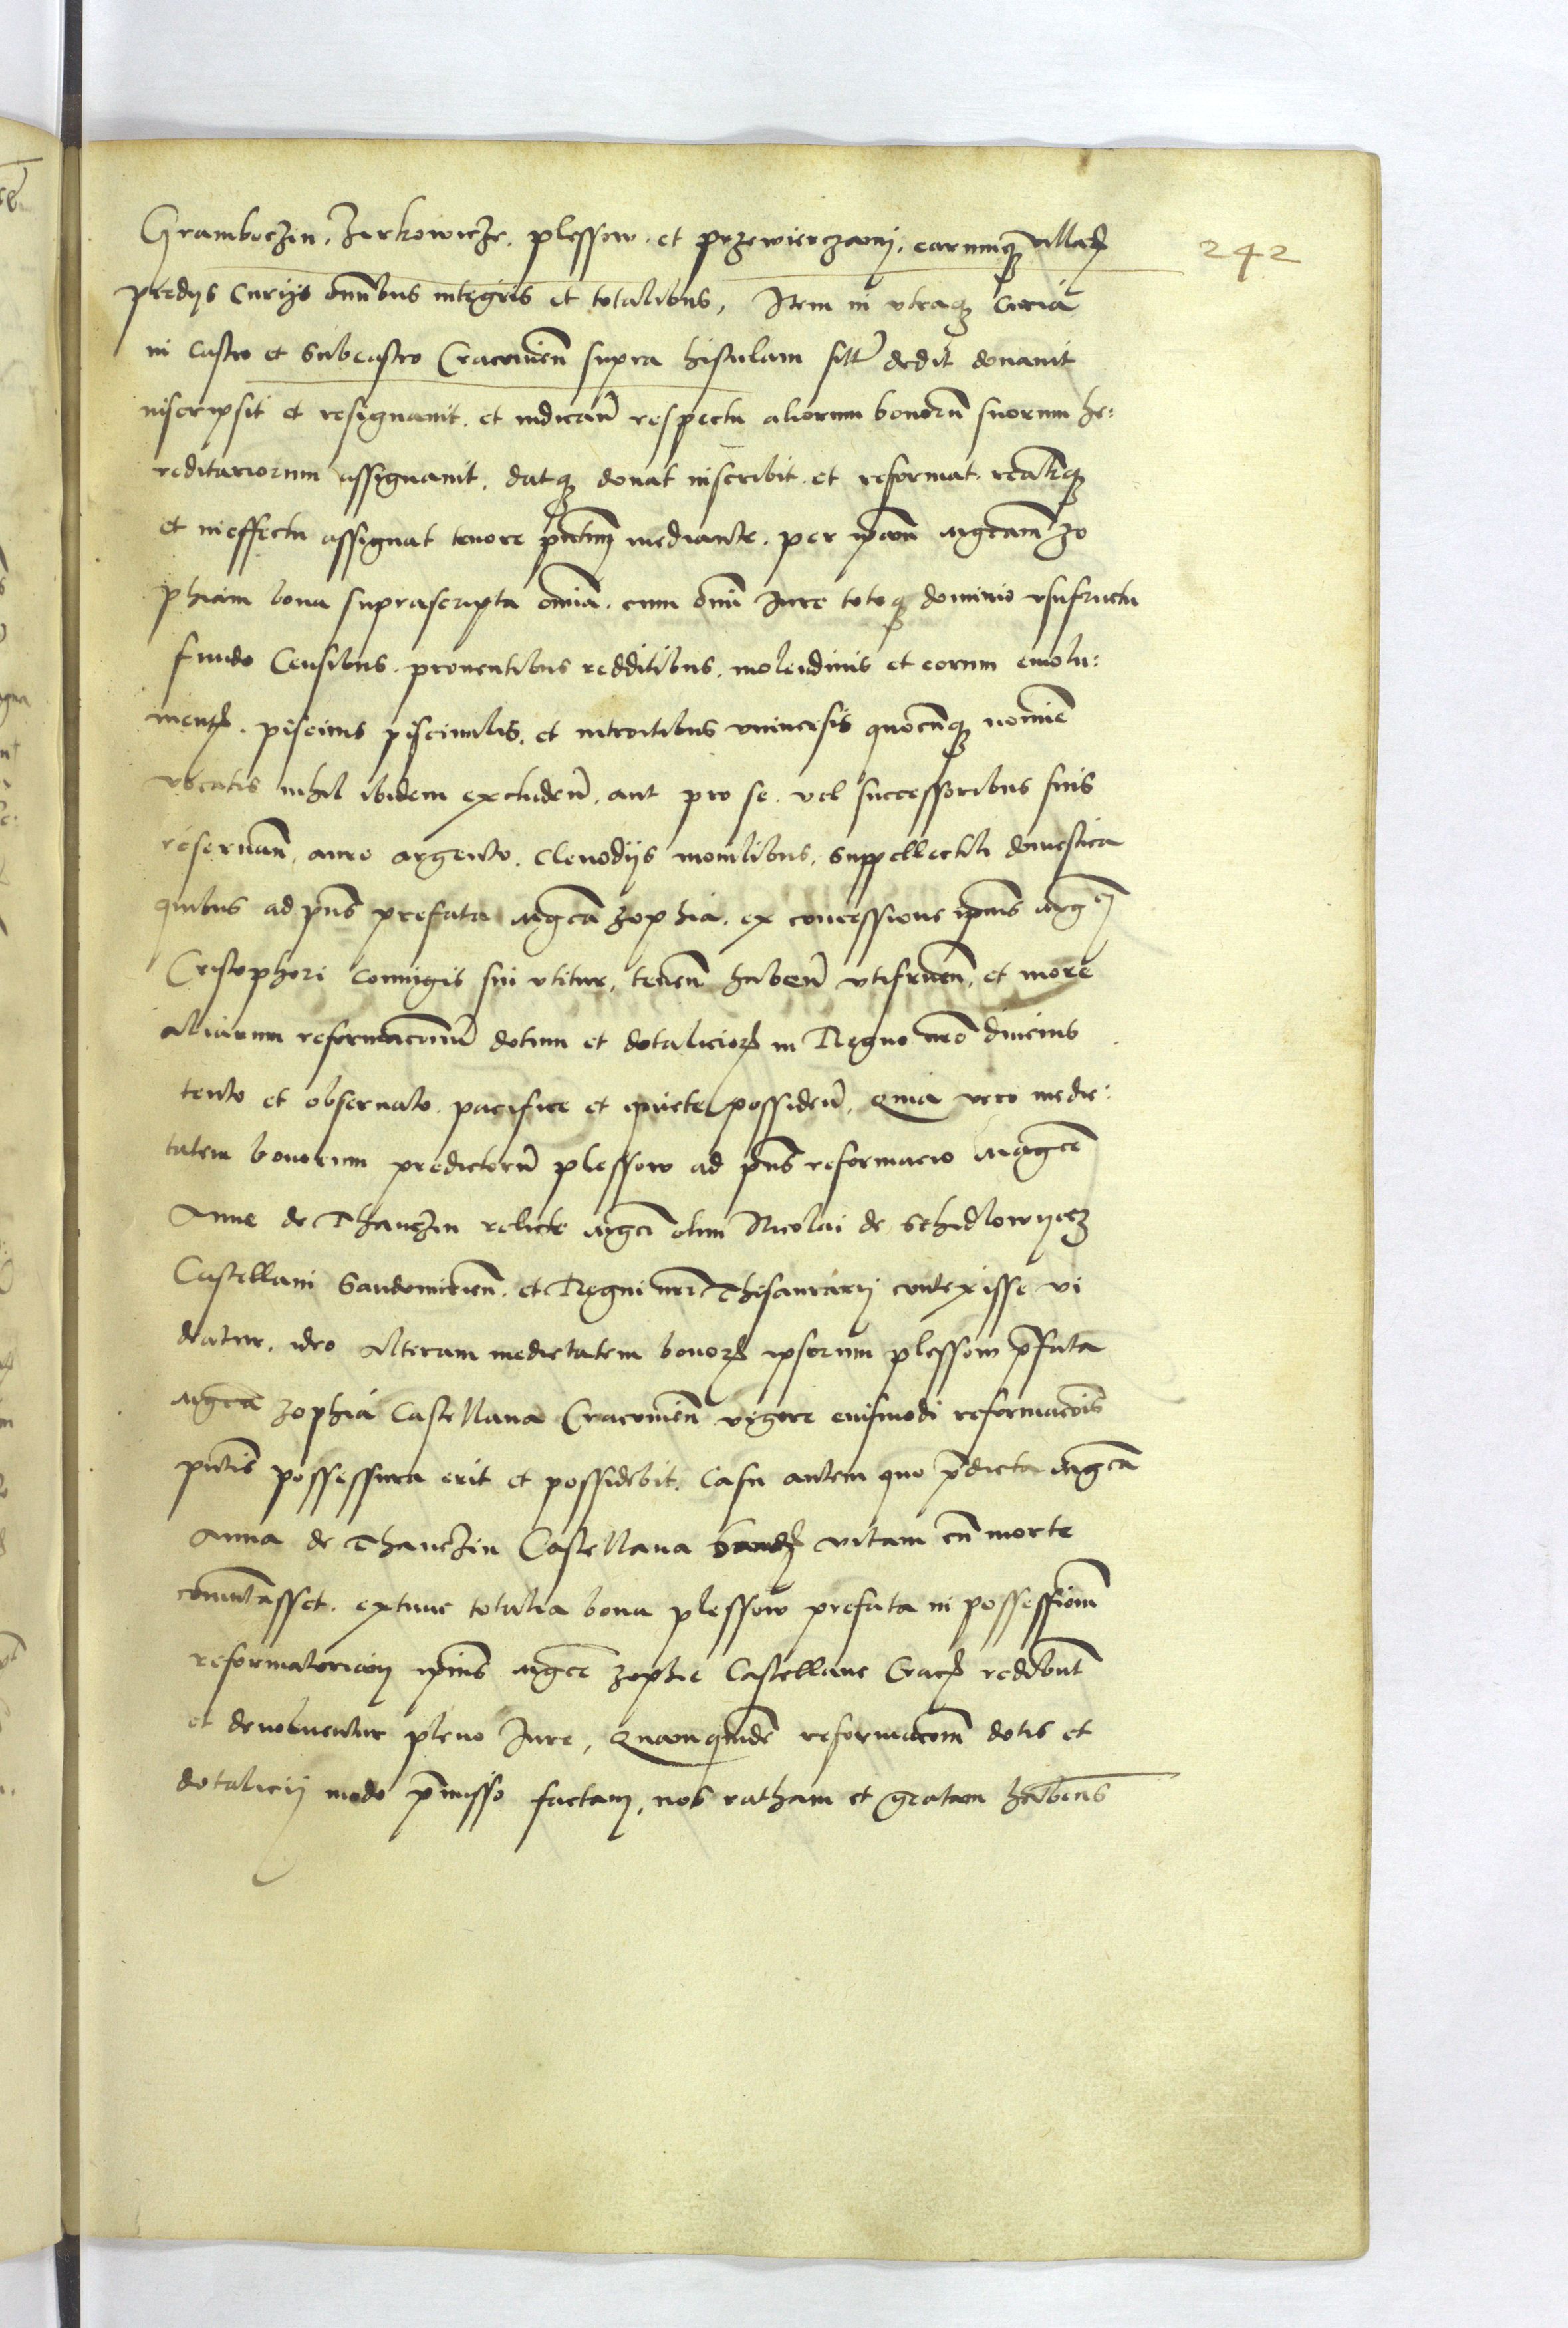 Gramboczin, Zirkowicze, plessow, et przewierczani, earumq villaȝ
242
predys Curijs omnibus integris et totalibus, Item in vtraq Curia
in Castro et Subcastro Cracovien̄ supra histulam sitt dedit donauit
inscripsit et resignauit, et iudicau respectu aliorum bonoru suorum he:
reditariorum assignauit, datq donat inscribit et reformat, realiterq
et in effectu assignat tenore pntiu mediante, per ipam Mgcam Zo
phiam bona suprascripta omia, cum omi Jure totoq dominio vsufructu
fundo Censibus prouentibus redditibus, molendinis et eorum emolu:
mentȝ, piscinis pisciculis, et introitibus vniuersis quocunq nomine
vocatis nihil ibidem excluden̄, aut pro se, vel successoribus suis
reseruan̄, auro argento, Clenodijs monilibus, suppellectili domestica
quibus ad pn̄s prefata Mgca Zophia, ex concessione ipius Mgci
Cristophori Coniugis sui vtitur, tenen̄ haben̄ vtifruen̄, et more
Aliarum reformaconu dotium et dotalicioȝ in Regno nr̄o diucius
tento et obseruato, pacifice et quiete possiden̄, Quia vero medie:
tatem bonorum predictoru plessow ad pn̄s reformacio Magce
Anne de Thanczin relicte Mgci olim Nicolai de Schidlowyecz
Castellani Sandomirien̄, et Regni nr̄i Thisaurarij contexisse vi
deatur, ideo Alteram medietatem bonoȝ ipsorum plessow pr̄fata
Mgca Zophia Castellana Cracovien̄ vigore euismodi reformacois
pntis possessura erit et possidebit, Casu autem quo pr̄dicta Mgca
Anna de Thanczin Castellana Sandȝ vitam cu morte
comutasset, extunc totalia bona plessow prefata in possessiom
reformatoriam ipius Mgce Zophie Castellane Cracȝ reddibunt
et deuoluentur pleno Jure, Quamquidē reformacom dotis et
dotalicij modo pr̄misso factam, nos ratham et gratam habentes